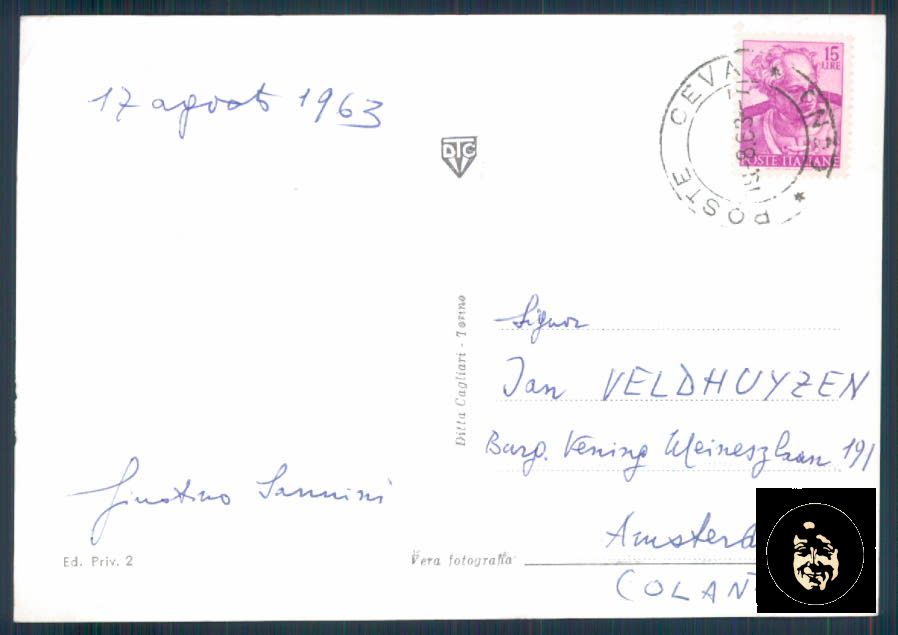 17 agosto 1963
DTC
15
LIRE
POSTE ITALIANE
POSTE CEVA
Ditta Cagliari - Torino
Signor
Jan VELDHUYZEN
Burg. Vening Meineszlaan 191
Amsterd
COLAN
Giustino Sannini
Ed. Priv. 2
Vera fotografia